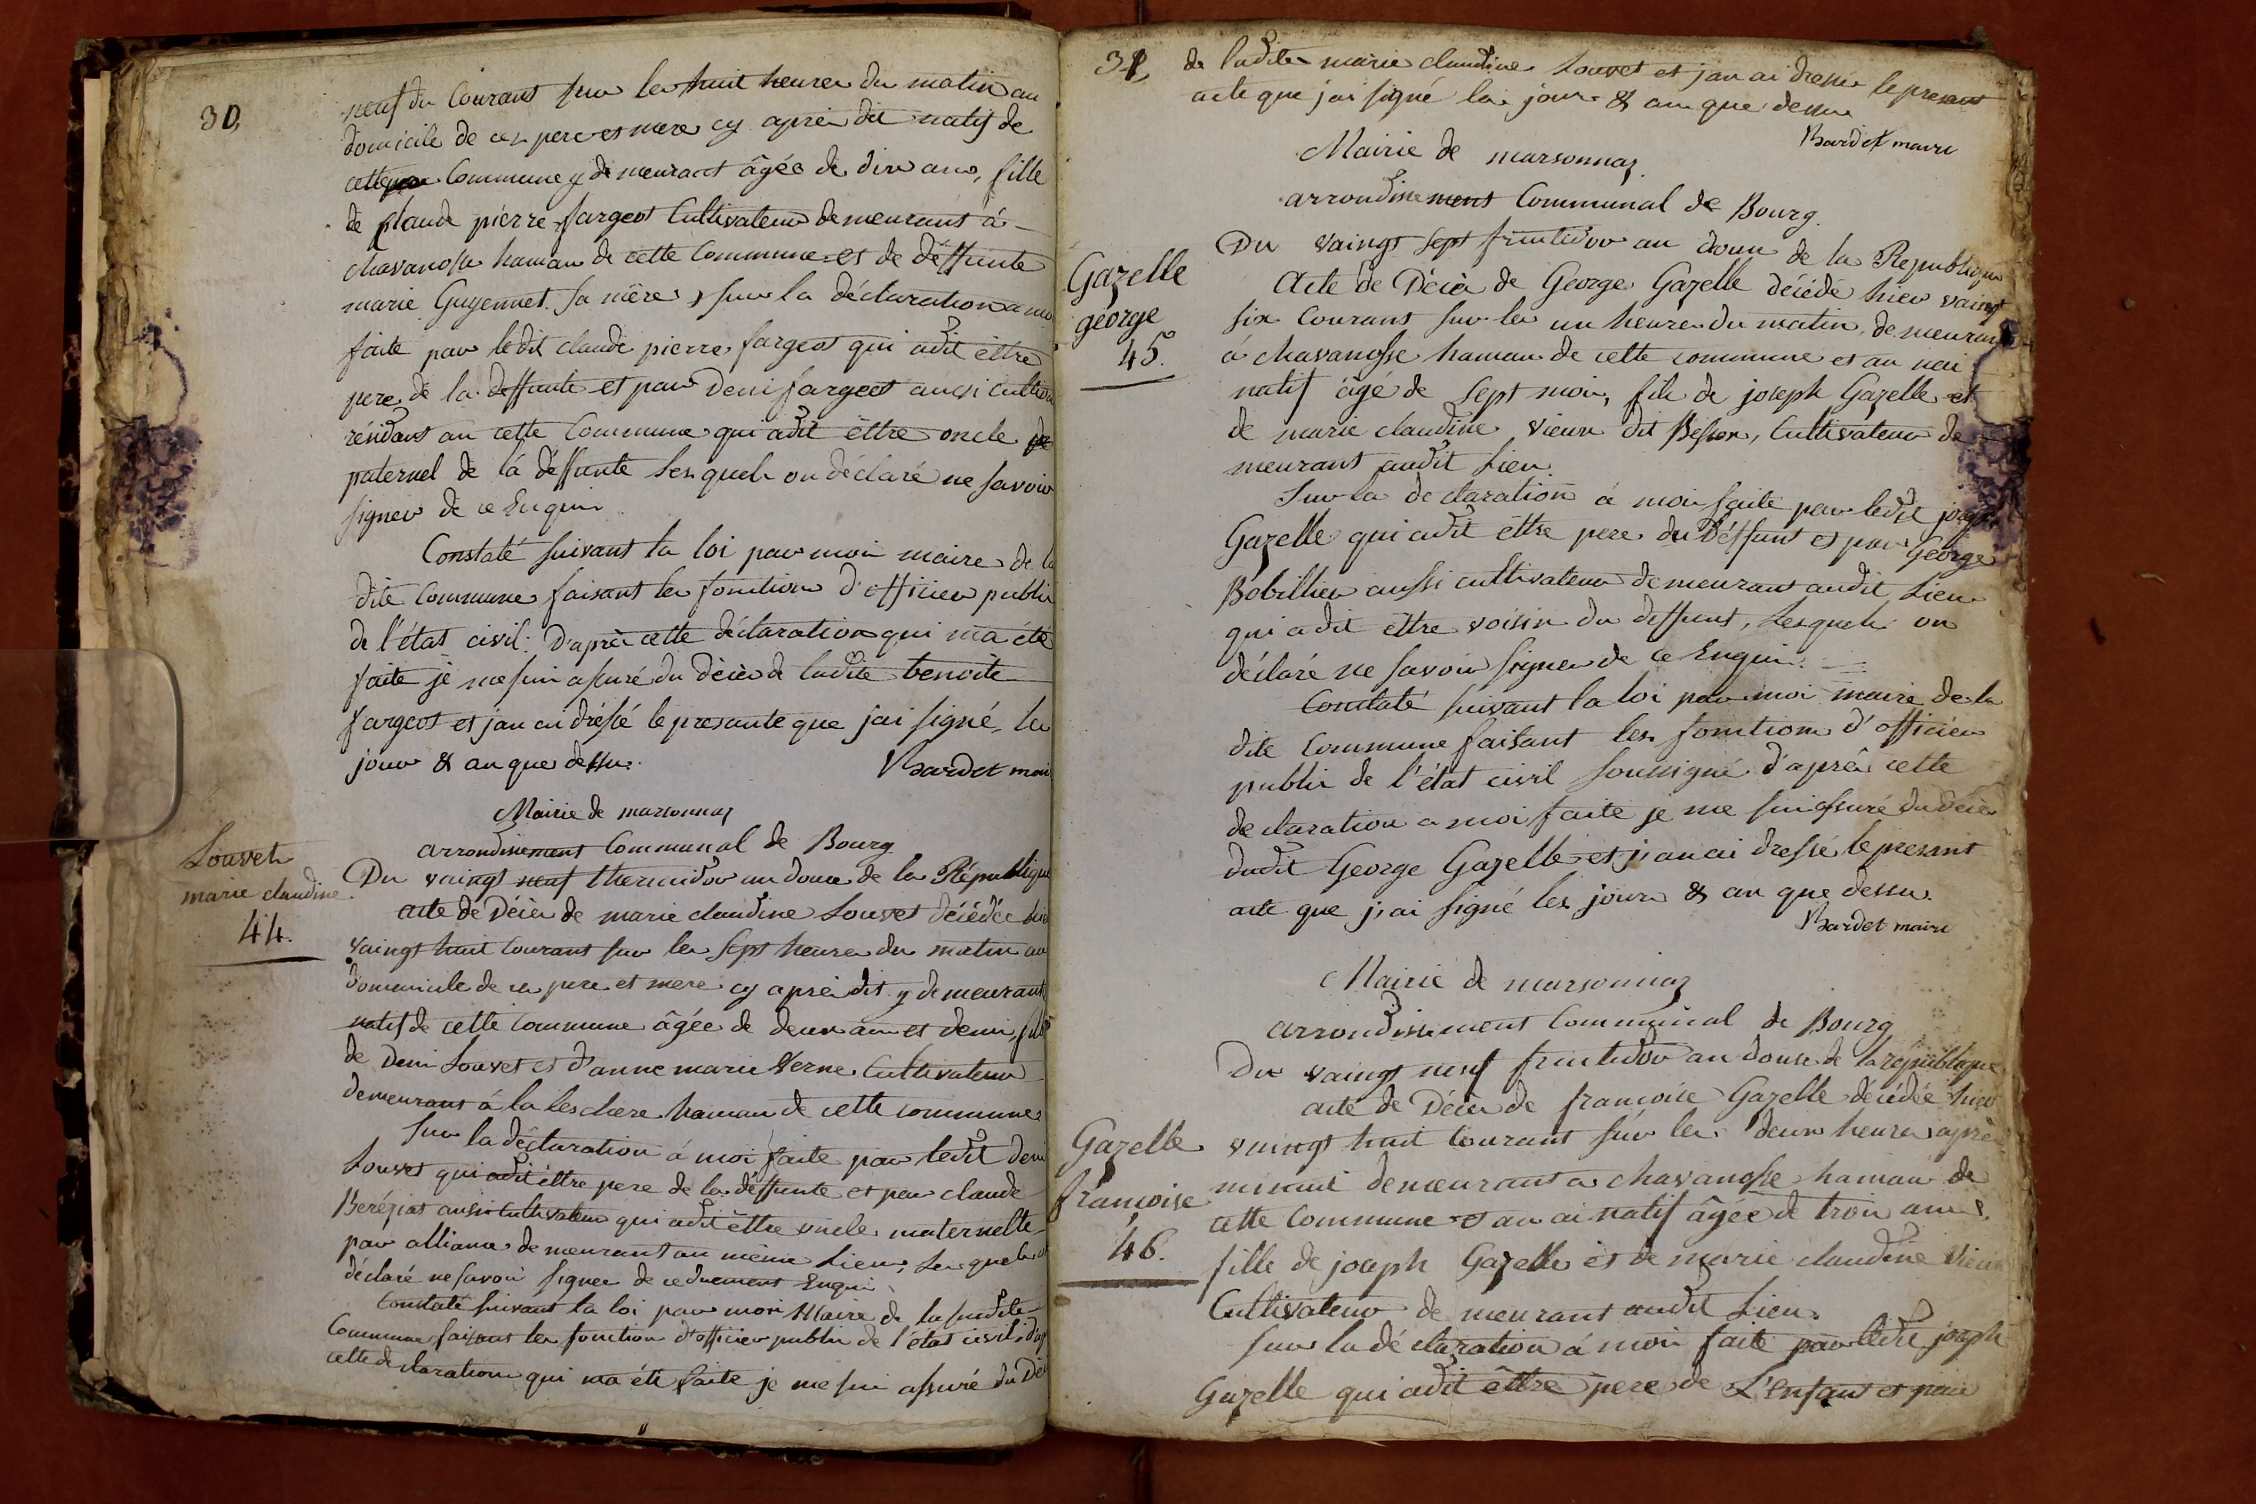 30,
neuf du Courant sur les huit heures du matin au
domicile de ces pere et mere cy aprés dit natif de
cette Commune y demeurant âgée de dix ans, fille
de Claude piérre fargeot Cultivateur demeurant á
chavanosse hamau de cette Commune et de déffunte
marie Guyennet sa mère, sur la déclaration a moi
faite par ledit claude pierre fargeot qui adit être
pere de la deffunte et par Deni fargeot aussi cultiv
résidant an cette Commune qui adit êttre oncle
paternel de lá déffunte lesquels on déclaré ne savoir
signer de ce Enquis
Constaté suivant la loi par moi maire de la
dite Commune faisant les fonction d'officier public
de l'état civil. D'aprés cette déclaration qui ma été
faite jé me suis assuré du décès de ladite benoite
fargeot et jan ai dréssé le presante que jai signé les
jour & an que dessus.
Bardet mai
Mairie de marsonnaz
arrondissement Communal de Bourg
Louvet
marie claudine
44.
Du vaingt neuf thermidor an douze de la République
acte dé Décès de marie claudine Louvet décédée hie
vaingt huit Courant sur les sept heures du matin au
domicile de ces pere et mere cy aprés dit y demeurant
natif de cette Commune âgée de deux an et demi, fille
de Deni Louvet et d'anne marie Verne Cultivateur
demeurant á la hamau de cette commune
Sur la déclaration á moi faite par ledit deni
Louvet qui adit êttre pere de la déffunte et par claude
Beréziat aussi Cultivateur qui adit êttre oncle maternelle
par alliance demeurant au même Lieu, Lesquels
déclaré ne savoir signer de ce Enquis
Constaté suivant la loi par moi Maire de la susdite
Commune faisant les fonction d'officier public de l'état civil, d'ap
cette déclaration qui ma été faite je me suis assuré du Déc
31,
de ladite marie claudine Louvet et jan ai dressé le presant
acte que jai signé les jour & an que dessus
Bardet maire
Mairie de marsonnaz
arrondissement Communal de Bourg
Gazelle
géorge
45.
Du vaingt sept fruitidor an douze de la Republique
Acte de Décès de George Gazelle décédé hier vaingt
six Courant sur les un heures du matin, demeurant
á chavanosse hamau de cette commune et an nai
natif âgé de sept mois, fils de joseph Gazelle et
de marie claudine vieux dit Besson, Cultivateur de
meurant audit Lieu.
Sur la déclaration á moi faite par ledit joseph
Gazelle qui adit êttre pere du déffunt et par George
Bobillier aussi cultivateur demeurant audit Lieu
qui adit êttre voisin du deffunt, Lesquels on
déclaré ne savoir signer de ce Enquis.
Constaté suivant la loi par moi maire de la
dite Commune faisant les fonction d'officier
public de l'état civil soussigné d'aprês cette
declaration a moi faite je me suis assuré du décès
dudit George Gazelle et j'an ai dressé le presant
acte que j'ai signé les jour & an que dessus.
Bardet maire
Mairie de marsonnaz
arrondissement Communal de Bourg
Gazelle
françoise
46.
Du vaingt neuf fruitidor an douze de la république
acte de Décès de françoise Gazelle décédée hier
vaingt huit Courant sur les deux heures aprés
minuit demeurant a chavanosse hamau de
cette Commune et an ai natif âgée de trois ans,
fille de joseph Gazelle et de marie claudine Vieux
Cultivateur demeurant audit Lieu.
Sur la déclaration á moi faite par ledit joseph
Gazelle qui adit êttre pere de L'enfant et par